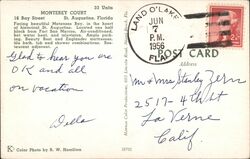 MONTEREY COURT 32 Units
16 Bay Street St. Augustine, Florida
Facing beautiful Matanzas Bay, in the heart
of historical St. Augustine. Located one half
block from Fort San Marco. Air-conditioned,
hot water heat, and
Beauty Rest and Englander mattresses,
tile bath, tub and shower combinations.
Restaurant adjacent.
Glad to hear you are
OK and all
on vacation
Dada
Color Photo by R. W. Hamilton
LAND O'LAKES
JUN
7
P.M.
1956
FLA.
POST CARD
Address
Mr & Mrs Stanley Fern
2517-4th St
La Verne
Calif.